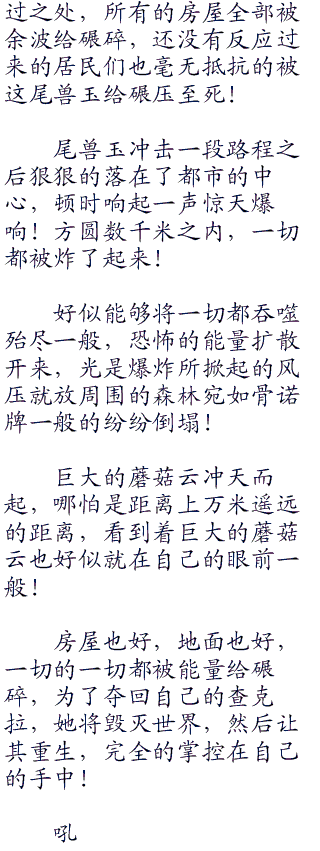 过之处，所有的房屋全部被
余波给碾碎，还没有反应过
来的居民们也毫无抵抗的被
这尾兽玉给碾压至死！
尾兽玉冲击一段路程之
后狠狠的落在了都市的中
心，顿时响起一声惊天爆
响！方圆数千米之内，一切
都被炸了起来！
好似能够将一切都吞噬
殆尽一般，恐怖的能量扩散
开来，光是爆炸所掀起的风
压就放周围的森林宛如骨诺
牌一般的纷纷倒塌！
巨大的蘑菇云冲天而
起，哪怕是距离上万米遥远
的距离，看到着巨大的蘑菇
云也好似就在自己的眼前一
般！
房屋也好，地面也好，
一切的一切都被能量给碾
碎，为了夺回自己的查克
拉，她将毁灭世界，然后让
其重生，完全的掌控在自己
的手中！
吼